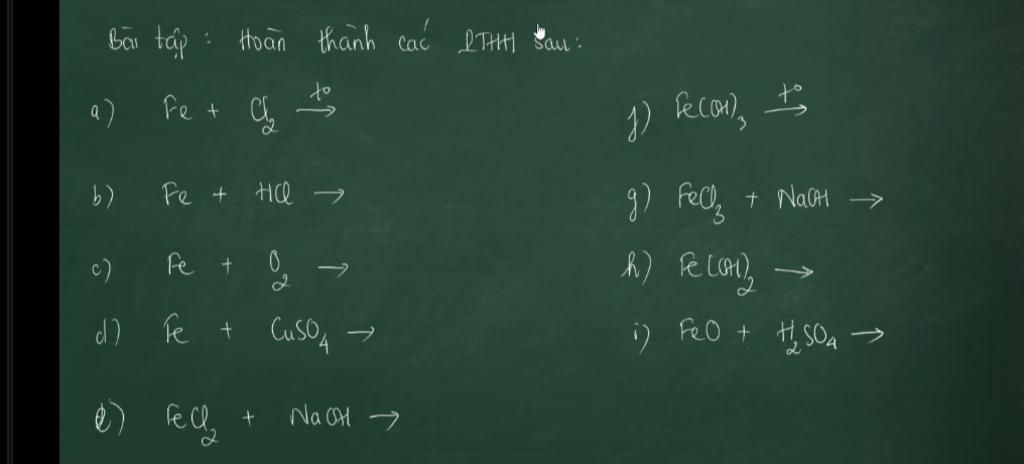 Bài tập : Hoàn thành các PTHH sau:
a) Fe + Cl₂ →(t°)
b) Fe + HCl →
c) Fe + O₂ →
d) Fe + CuSO₄ →
e) FeCl₂ + NaOH →
f) Fe(OH)₃ →(t°)
g) FeCl₃ + NaOH →
h) Fe(OH)₂ →
i) FeO + H₂SO₄ →